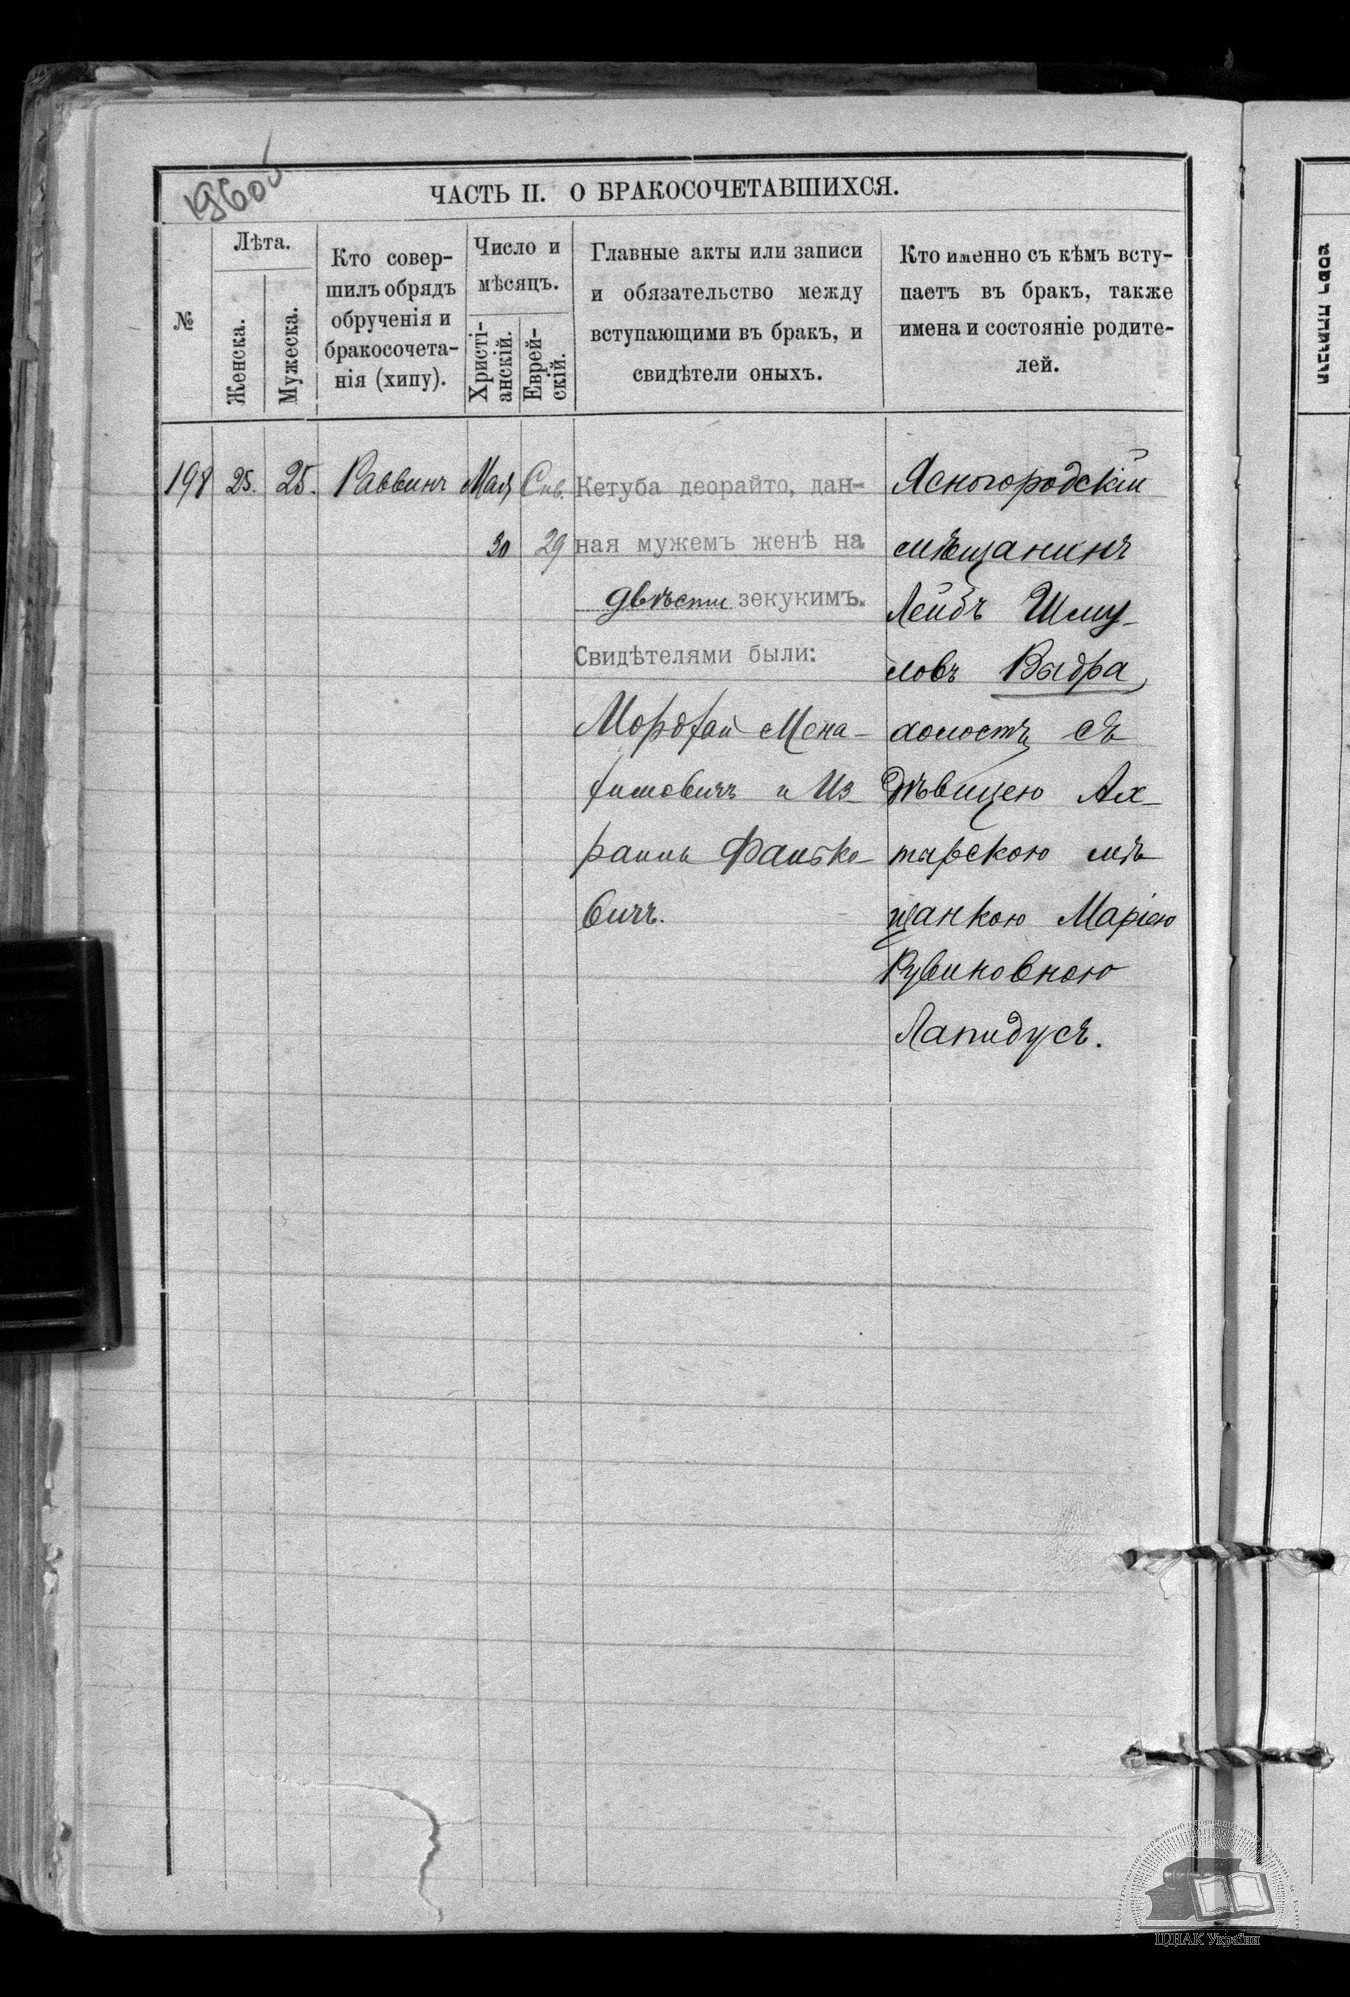 19605
ЧАСТЬ II. О БРАКОСОЧЕТАВШИХСЯ.
№
Лѣта.
Женска.
Мужеска.
Кто совер-
шилъ обрядъ
обрученія и
бракосочета-
нія (хипу).
Число и
мѣсяцъ.
Христі-
анскій.
Еврей-
скій.
Главные акты или записи
и обязательство между
вступающими въ бракъ, и
свидѣтели оныхъ.
Кто именно съ кѣмъ всту-
паетъ въ бракъ, также
имена и состояніе родите-
лей.
198
25.
25.
Раввинъ
Мая
30
Сив.
29
Кетуба деорайто, дан-
ная мужемъ женѣ на
двѣсти зекукимъ.
Свидѣтелями были:
Мордхай Мена-
химовичъ и Из-
раиль Файбко-
вичъ.
Ясногородскій
мѣщанинъ
Лейбъ Шму-
ловъ Выдра,
холостъ съ
дѣвицею Ах-
тырскою мѣ-
щанкою Маріею
Рувиновною
Лапидусъ.
ЦДІАК України